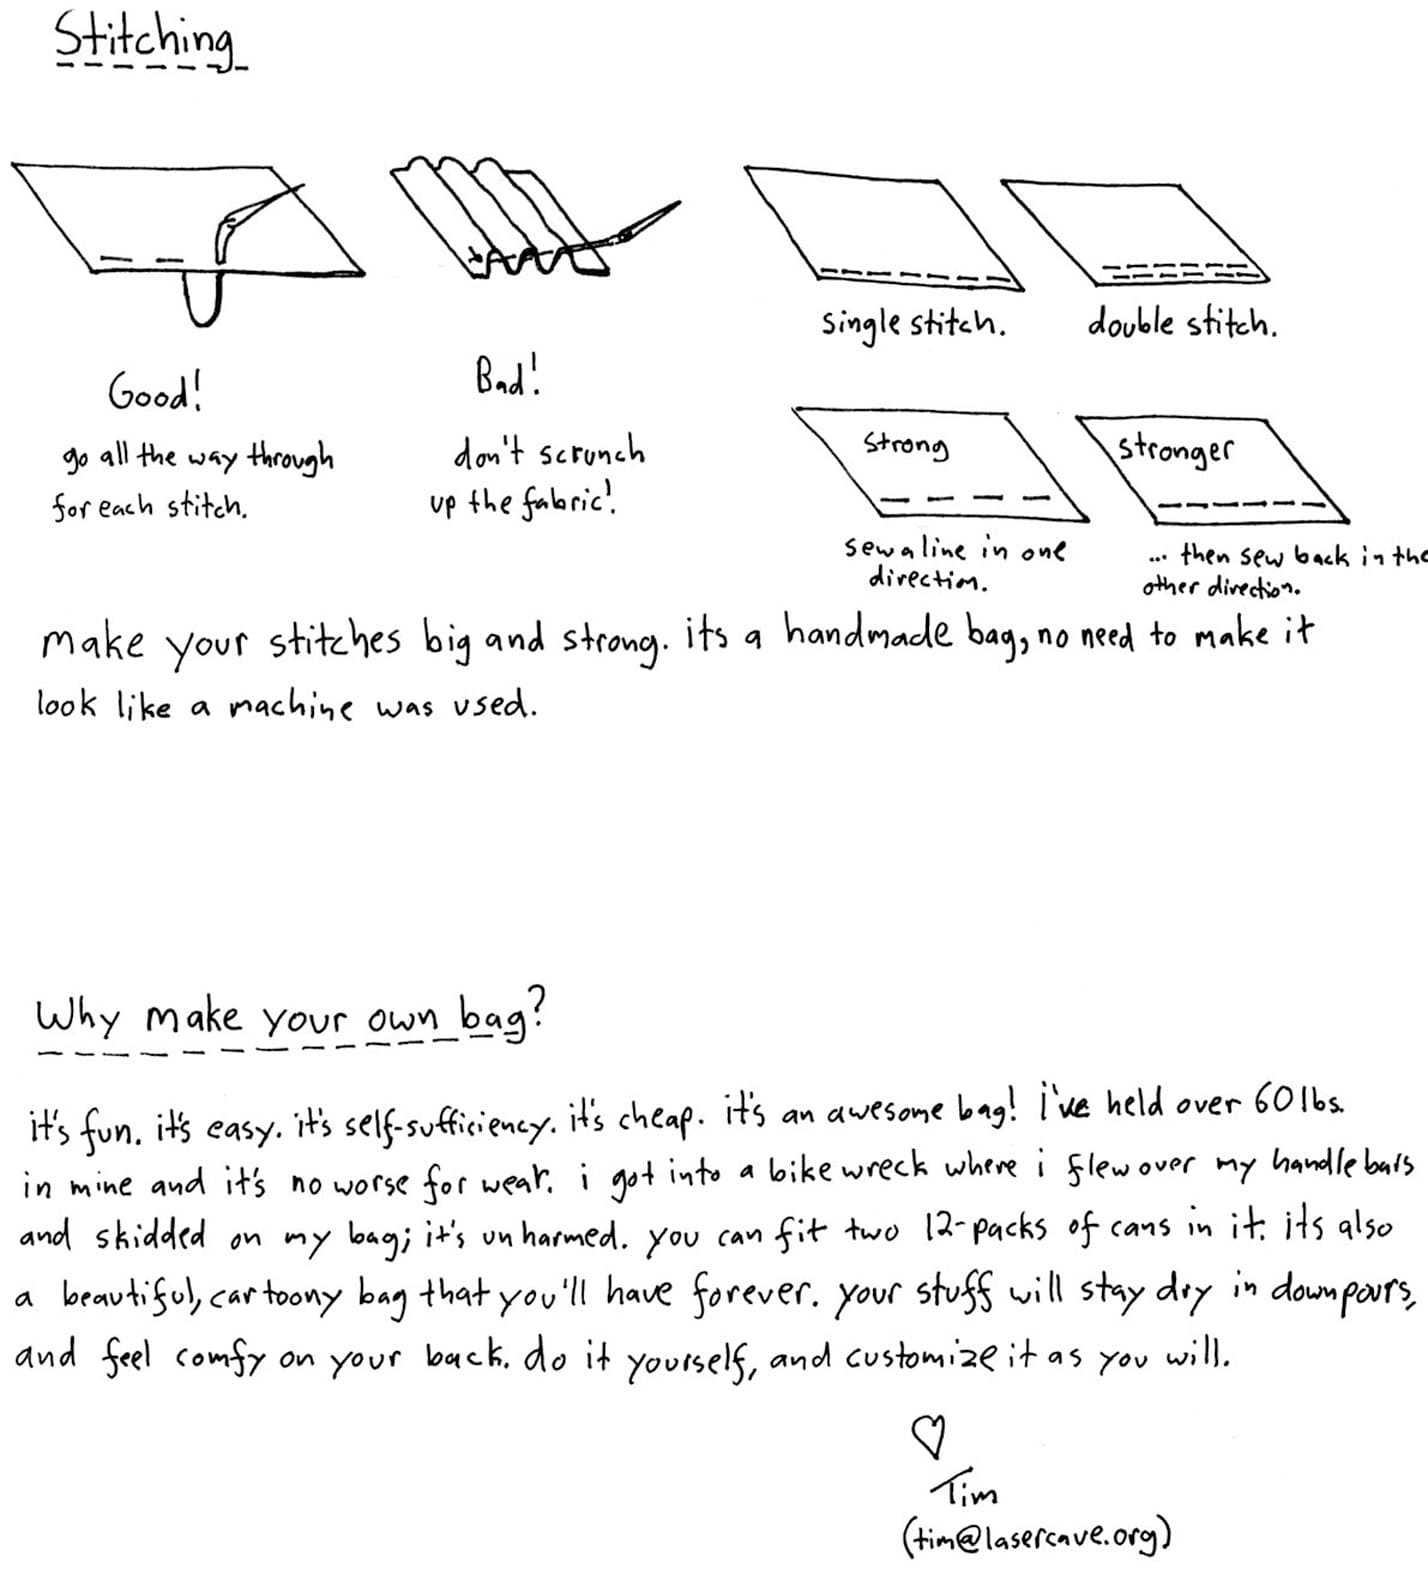 Stitching
Good!
go all the way through
for each stitch.
Bad!
don't scrunch
up the fabric!
single stitch.
double stitch.
strong
sew a line in one
direction.
stronger
... then sew back in the
other direction.
make your stitches big and strong. its a handmade bag, no need to make it
look like a machine was used.
Why make your own bag?
it's fun. it's easy. it's self-sufficiency. it's cheap. it's an awesome bag! i've held over 60 lbs.
in mine and it's no worse for wear. i got into a bike wreck where i flew over my handlebars
and skidded on my bag; it's unharmed. you can fit two 12-packs of cans in it. its also
a beautiful, cartoony bag that you'll have forever. your stuff will stay dry in downpours,
and feel comfy on your back. do it yourself, and customize it as you will.
♡
Tim
(tim@lasercave.org)